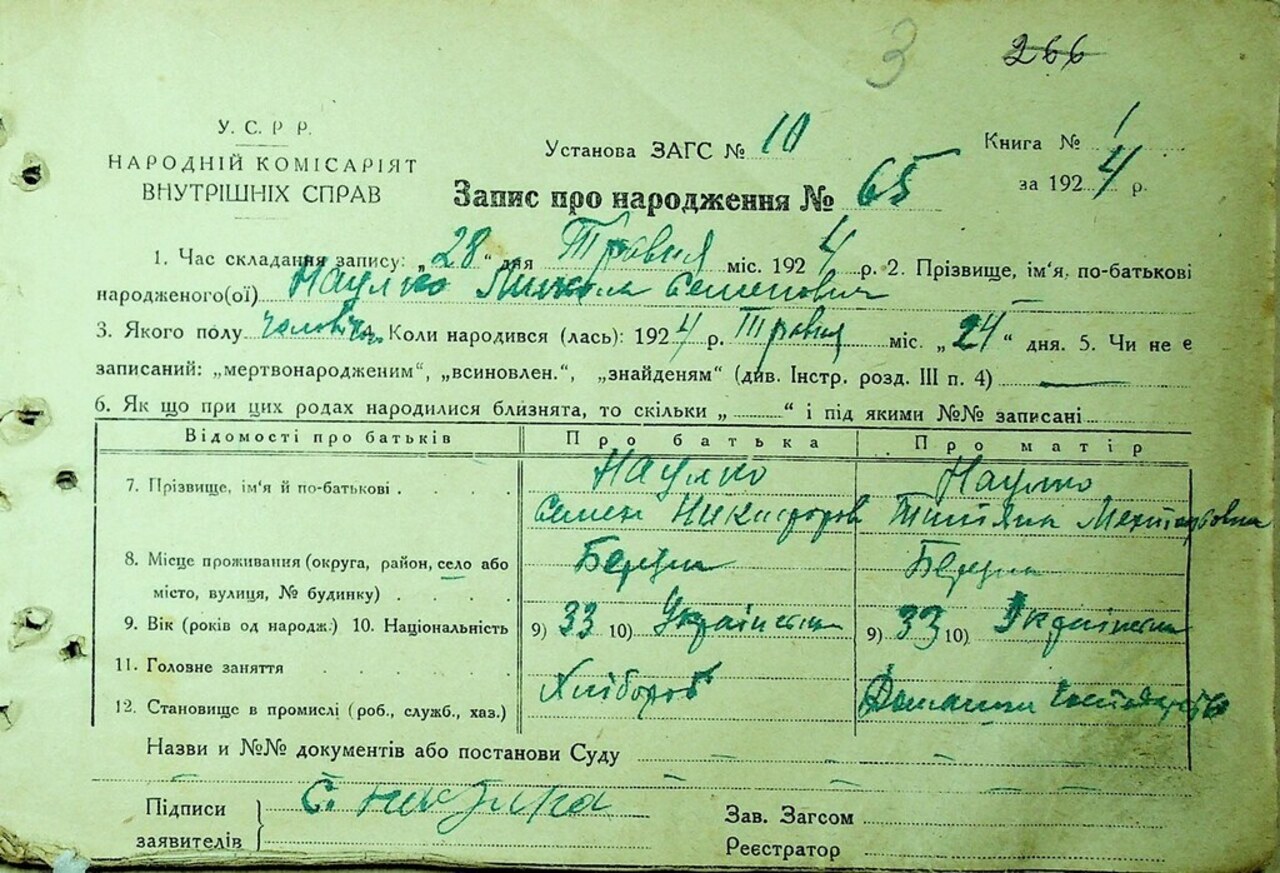 3 266
У. С. Р. Р.
НАРОДНІЙ КОМІСАРІЯТ
ВНУТРІШНІХ СПРАВ
Установа ЗАГС № 10
Книга № 1
за 1924 р.
Запис про народження № 65
1. Час складання запису: „28“ дня Травня міс. 1924 р. 2. Прізвище, ім'я, по-батькові
народженого(ої) Наулко Семенович
3. Якого полу 4. Коли народився (лась): 1924 р. Травня міс. „24“ дня. 5. Чи не є
записаний: „мертвонародженим“, „всиновлен.“, „знайденям“ (див. Інстр. розд. III п. 4)
6. Як що при цих родах народилися близнята, то скільки „ “ і під якими №№ записані
Відомості про батьків Про батька Про матір
7. Прізвище, ім'я й по-батькові Наулко Наулко
Семен Никифоров Титяна
8. Місце проживання (округа, район, село або
місто, вулиця, № будинку)
9. Вік (років од народж.) 10. Національність 9) 33 10) 9) 33 10)
11. Головне заняття Хлібороб
12. Становище в промислі (роб., служб., хаз.)
Назви и №№ документів або постанови Суду
Підписи
заявителів
С. Наулко
Зав. Загсом
Реєстратор